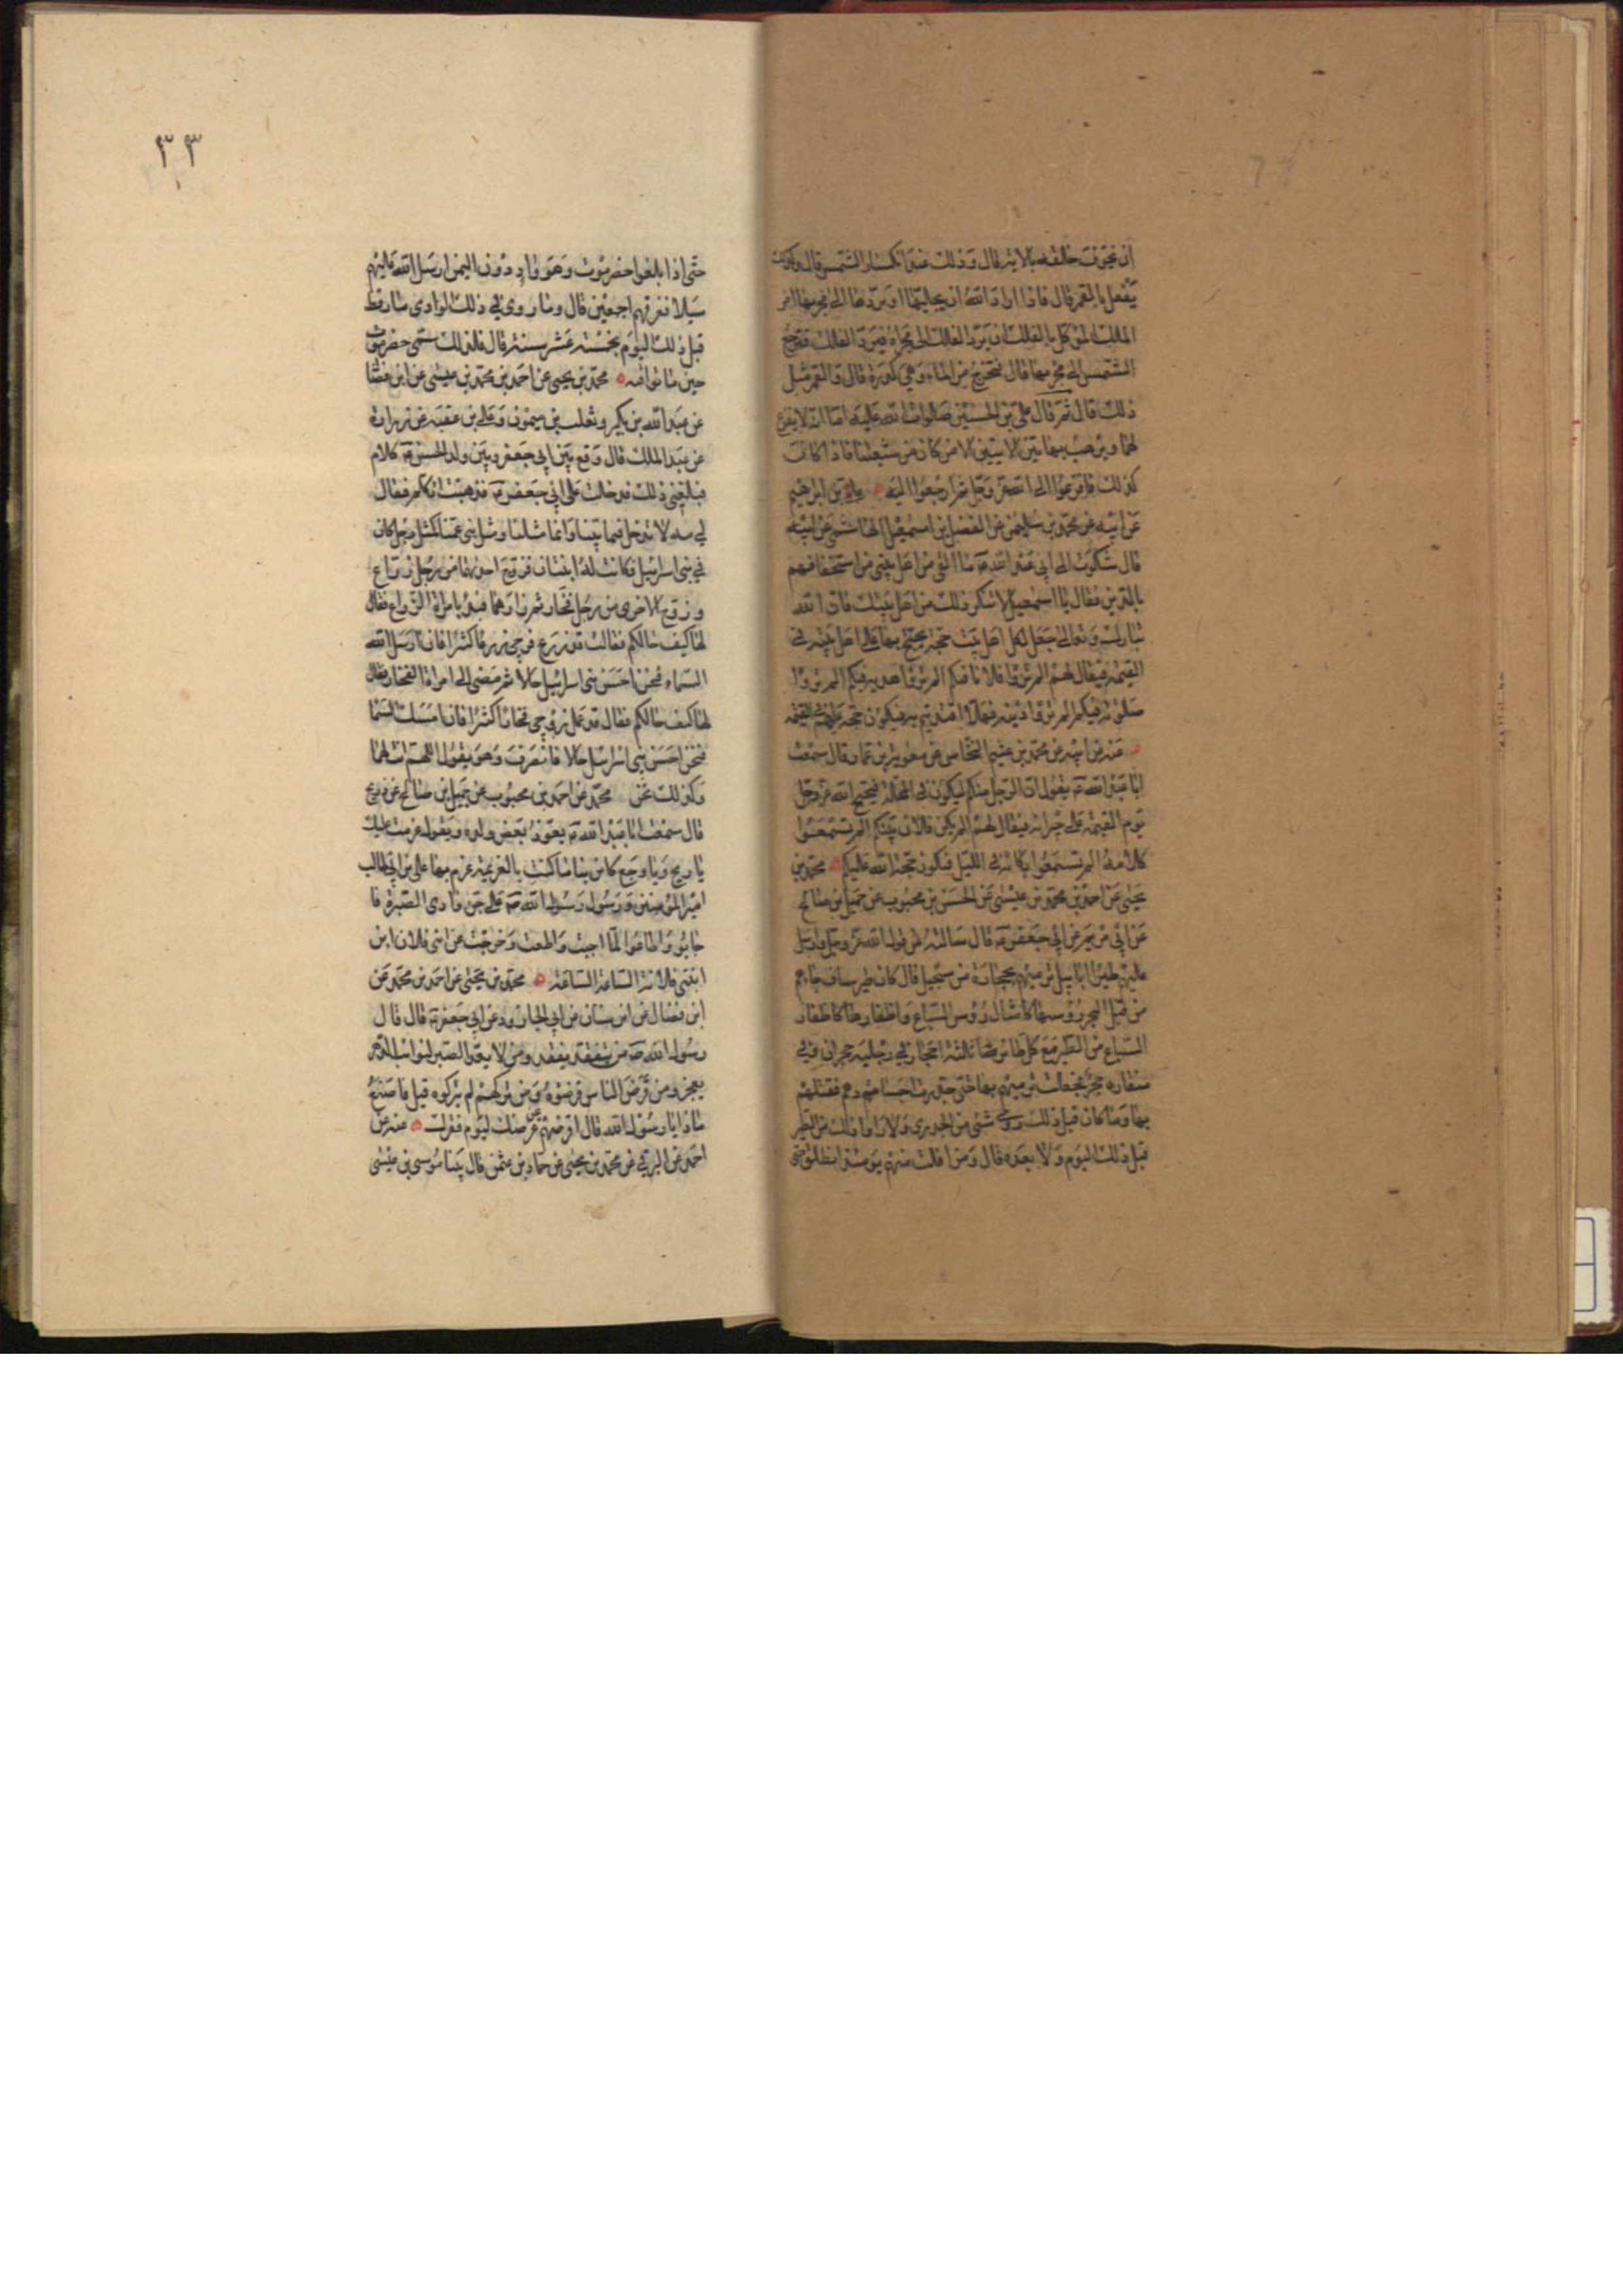 ان يخوف خلقه بالاية قال وذلك عند انكسار الشمس قال وكذلك
يفعل بالقمر قال فاذا اراد الله ان يجليها او يردها الى مجريها امر
الملك الموكل بالفلك ان يرد الفلك الى مجراه فيرد الفلك فترجع
الشمس الى مجريها قال فتخرج من الماء وهي كدرة قال والقمر مثل
ذلك قال ثم قال علي بن الحسين صلوات الله عليه اما انه لا يفزع
لهما ويرهب بهاتين الايتين الا من كان من شيعتنا فاذا كان
كذلك فافزعوا الى الله عز وجل ثم ارجعوا اليه علي بن ابرهيم
عن ابيه عن محمد بن سليمن عن الفضل بن اسمعيل الهاشمي عن ابيه
قال شكوت الى ابي عبد الله ع ما القى من اهل بيتي من استخفافهم
بالدين فقال يا اسمعيل لا تنكر ذلك من اهل بيتك فان الله
تبارك وتعالى جعل لكل اهل بيت حجة يحتج بها على اهل بيته في
القيمة فيقال لهم الم تروا فلانا فيكم الم تروا هديه فيكم الم تروا
صلوته فيكم الم تروا دينه فهلا اقتديتم به فيكون حجة عليهم في القيمة
عنه عن ابيه عن محمد بن عثيم النخاس عن معوية بن عمار قال سمعت
ابا عبد الله ع يقول ان الرجل منكم ليكون في المحلة فيحتج الله عز وجل
يوم القيمة على جيرانه فيقال لهم الم يكن فلان بينكم الم تسمعوا
كلامه الم تسمعوا بكائه في الليل فيكون حجة الله عليكم محمد بن
يحيى عن احمد بن محمد بن عيسى عن الحسن بن محبوب عن جميل بن صالح
عن ابي مريم عن ابي جعفر ع قال سالته عن قول الله عز وجل وارسل
عليهم طيرا ابابيل ترميهم بحجارة من سجيل قال كان طير ساف جاءهم
من قبل البحر رؤسها كامثال رؤس السباع واظفارها كاظفار
السباع من الطير مع كل طائر ثلثة احجار في رجليه حجران وفي
منقاره حجر فجعلت ترميهم بها حتى جدرت اجسامهم فقتلهم
بها وما كان قبل ذلك رؤي شئ من الجدري ولا راوا ذلك من الطير
قبل ذلك اليوم ولا بعده قال ومن افلت منهم يومئذ انطلق حتى
٣٣
حتى اذا بلغوا حضرموت وهو واد دون اليمن ارسل الله عليهم
سيلا فغرقهم اجمعين قال وما روي في ذلك الوادي ماء قط
قبل ذلك اليوم بخمسة عشر سنة قال فلذلك سمى حضرموت
حين ماتوا فيه محمد بن يحيى عن احمد بن محمد بن عيسى عن ابن فضال
عن عبد الله بن بكير وثعلبة بن ميمون وعلي بن عقبة عن زرارة
عن عبد الملك قال وقع بين ابي جعفر وبين ولد الحسن ع كلام
فبلغني ذلك فدخلت على ابي جعفر ع فذهبت اتكلم فقال
لي مه لا تدخل فيما بيننا وانما مثلنا ومثل بني عمنا كمثل رجل كان
في بني اسرائيل كانت له ابنتان فزوج احديهما من رجل زراع
وزوج الاخرى من رجل فخار ثم زارهما فبدأ بامراة الزراع فقال
لها كيف حالكم فقالت قد زرع زوجي زرعا كثيرا فان ارسل الله
السماء فنحن احسن بني اسرائيل حالا ثم مضى الى امراة الفخار فقال
لها كيف حالكم فقال قد عمل زوجي فخارا كثيرا فان امسك السماء
فنحن احسن بني اسرائيل حالا فانصرف وهو يقول اللهم انت لهما
وكذلك نحن محمد عن احمد بن محبوب عن جميل بن صالح عن ذريح
قال سمعت ابا عبد الله ع يعوذ بعض ولده ويقول عزمت عليك
يا ريح ويا وجع كائن ما كنت بالعزيمة عزم بها علي بن ابي طالب
امير المؤمنين ورسول رسول الله ص على جن وادي الصبرة فا
جابوا واطاعوا لما اجبت واطعت وخرجت عن ابني فلان ابن
ابنتي فلانة الساعة الساعة محمد بن يحيى عن احمد بن محمد عن
ابن فضال عن ابن سنان عن ابي الجارود عن ابي جعفر ع قال قال
رسول الله ص من يتفقد يفقد ومن لا يعد الصبر لنوائب الدهر
يعجز ومن قرض الناس قرضوه ومن تركهم لم يتركوه قيل فاصنع
ماذا يا رسول الله قال اقرضهم من عرضك ليوم فقرك عنه عن
احمد عن البرقي عن محمد بن يحيى عن حماد بن عثمن قال بينا موسى بن عيسى